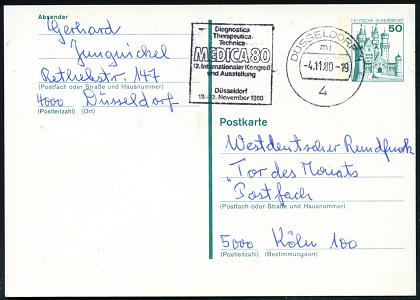 Absender
Gerhard
Jungnickel
Rethelstr. 147
(Postfach oder Straße und Hausnummer)
4000 Düsseldorf
(Postleitzahl) (Ort)
Diagnostica
Therapeutica
Technica
MEDICA 80
12. Internationaler Kongreß
und Ausstellung
Düsseldorf
19.-22. November 1980
DÜSSELDORF
mi
-4.11.80-19
4
DEUTSCHE BUNDESPOST
50
Postkarte
Westdeutscher Rundfunk
"Tor des Monats
Postfach
(Postfach oder Straße und Hausnummer)
5000 Köln 100
(Postleitzahl) (Bestimmungsort)